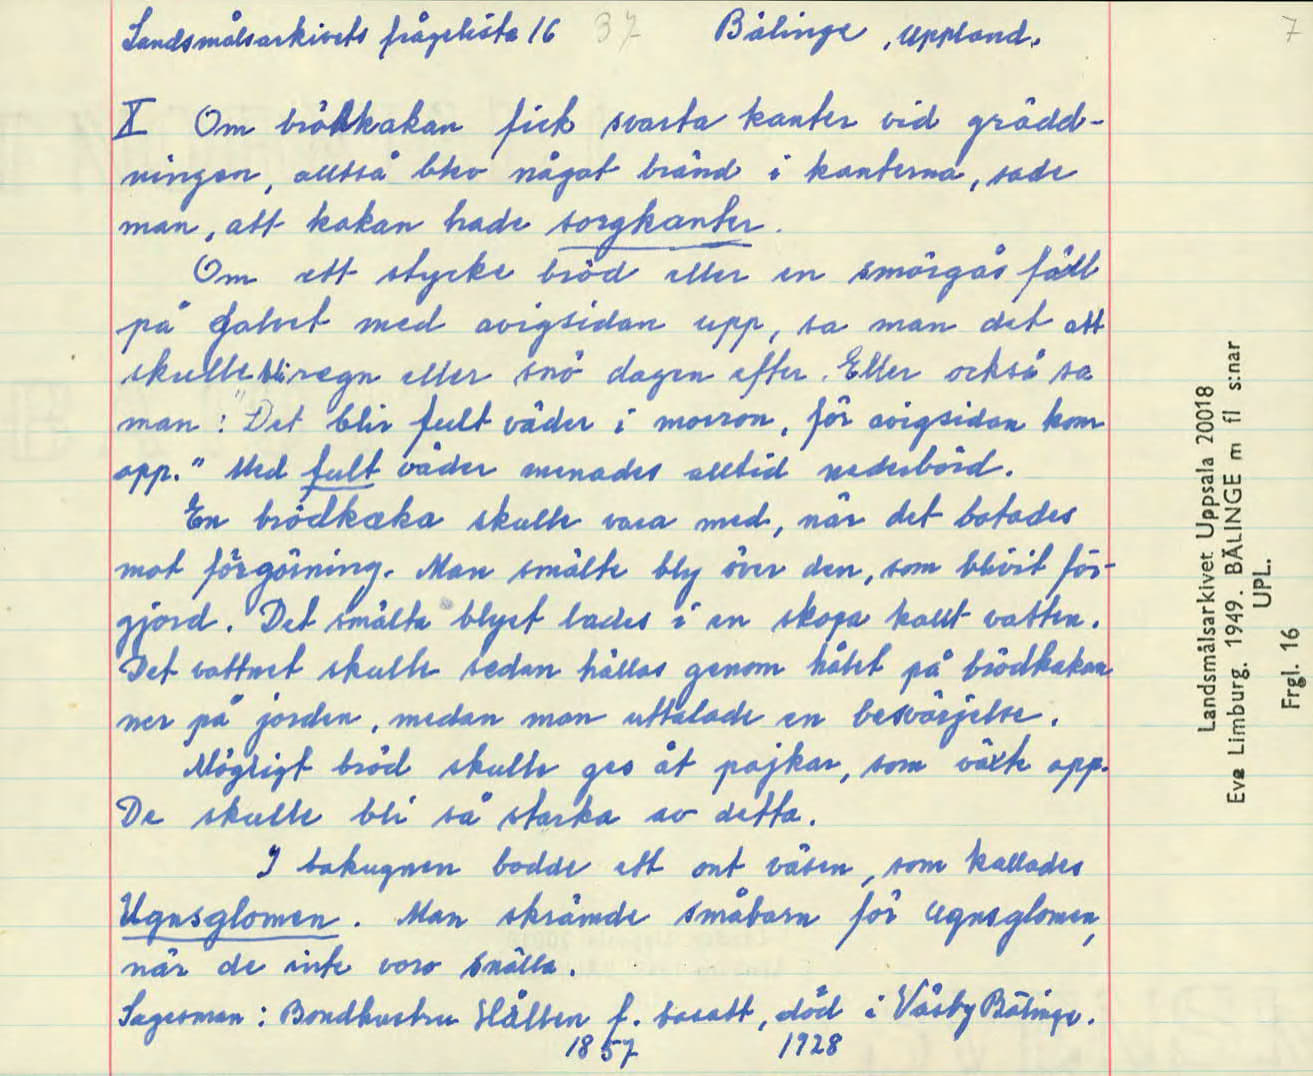 Landsmålsarkivets frågelista 16 37 Bälinge, Uppland.
7
X Om brödkakan fick svarta kanter vid grädd-
ningen, alltså blev något bränd i kanterna, sade
man, att kakan hade sorgkanter.
Om ett stycke bröd eller en smörgås föll
på golvet med avigsidan upp, sa man det att
skulle bli regn eller snö dagen efter. Eller också sa
man: "Det blir fult väder i morron, för avigsidan kom
opp." Med fult väder menades alltid nederbörd.
En brödkaka skulle vara med, när det botades
mot förgörning. Man smälte bly över den, som blivit för-
gjord. Det smälta blyet lades i en skopa kallt vatten.
Det vattnet skulle sedan hällas genom hålet på brödkakan
ner på jorden, medan man uttalade en besvärjelse.
Mögligt bröd skulle ges åt pojkar, som växte opp.
De skulle bli så starka av detta.
I bakugnen bodde ett ont väsen, som kallades
Ugnsglomen. Man skrämde småbarn för Ugnsglomen,
när de inte voro snälla.
Sagesman: Bondhustru f. bosatt, död i Väsby Bälinge.
1857 1928
Landsmålsarkivet Uppsala 20018
Eva Limburg. 1949. BÄLINGE m fl s:nar
UPL.
Frgl. 16